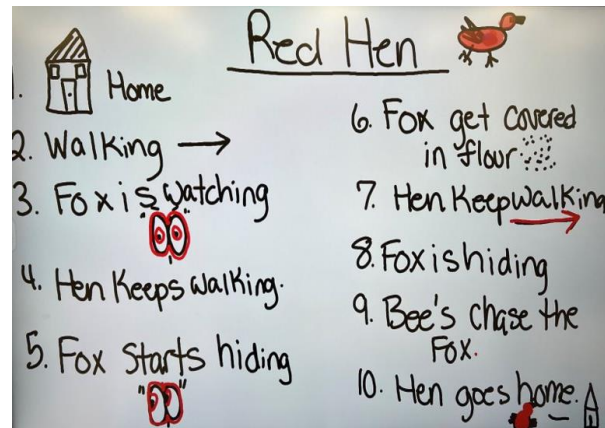 Red Hen
1. Home
2. Walking
3. Fox is watching
4. Hen Keeps walking.
5. Fox starts hiding
6. Fox get covered
in flour
7. Hen Keep walking
8. Fox is hiding
9. Bee's chase the
Fox.
10. Hen goes home.